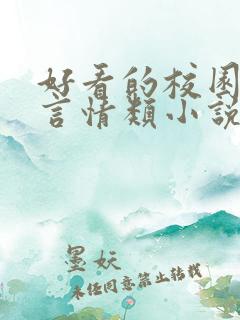 好看的校园
言情类小说
墨妖
未经同意禁止转载